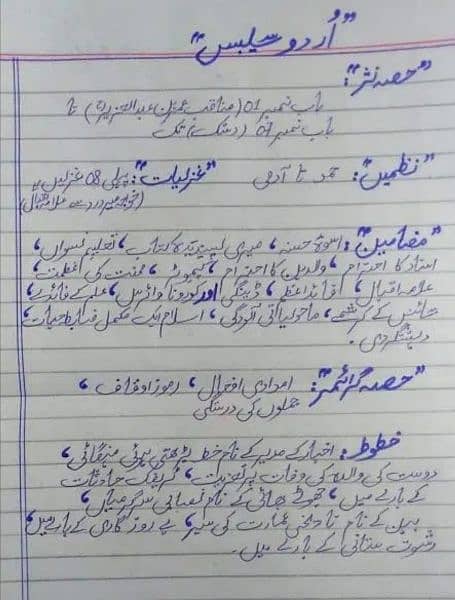 "اُردو سیلبس"
"حصہ نثر":
باب نمبر 01 (مناقب عمر بن عبدالعزیزؒ) تا
باب نمبر 07 (دستک) تک
"نظمیں": حمد تا آدمی "غزلیات": پہلی 08 غزلیں
(خواجہ میر درد سے علامہ اقبال)
"مضامین": اسوۂ حسنہ، میری پسندیدہ کتاب، تعلیم نسواں،
استاد کا احترام، والدین کا احترام، کمپیوٹر، محنت کی عظمت،
علامہ اقبال، قائداعظم، ڈینگی اور کورونا وائرس، علم کے فائدے،
سائنس کے کرشمے، ماحولیاتی آلودگی، اسلام ایک مکمل ضابطہ حیات،
دہشتگردی۔
"حصہ گرائمر": امدادی افعال، رموز اوقاف،
جملوں کی درستگی
خطوط: اخبار کے مدیر کے نام خط بڑھتی ہوئی مہنگائی،
دوست کی والدہ کی وفات پر تعزیت، ٹریفک حادثات
کے بارے میں، چھوٹے بھائی کے نام نصابی سرگرمیاں،
بہن کے نام تاریخی عمارت کی سیر، بے روزگاری کے بارے میں،
رشوت ستانی کے بارے میں۔